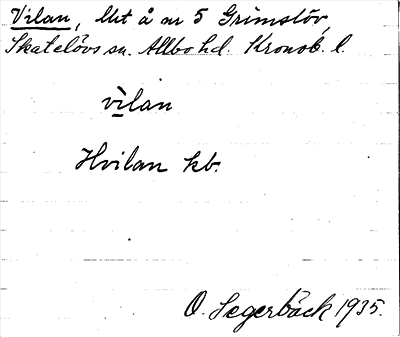 Vilan, lht å nr 5 Grimslöv,
Skatelövs sn. Allbo hd. Kronob. l.
vìlan
Hvilan kb.
O. Segerbäck 1935.